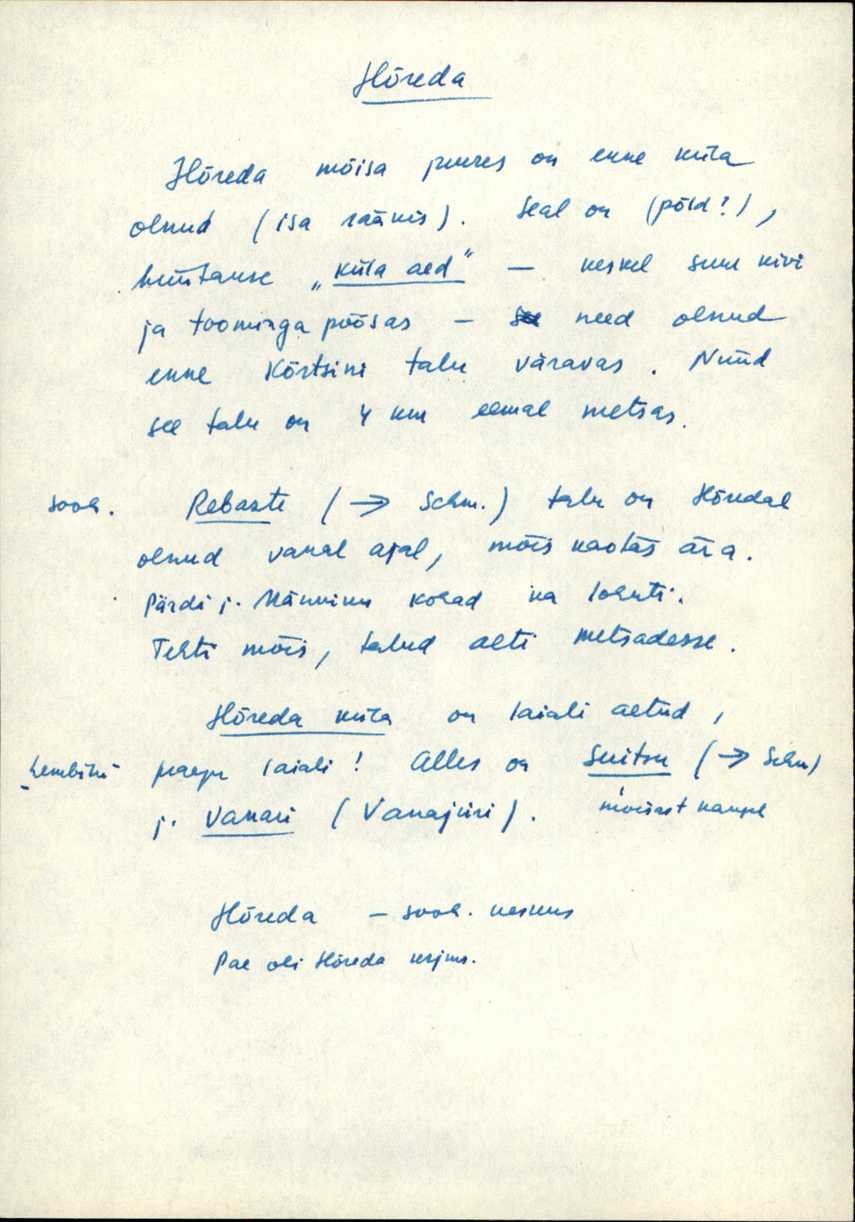 Hõreda
Hõreda mõisa juures on enne küla
olnud (isa rääkis). Seal on (põld!),
hüütakse „küla aed" – keskel suur kivi
ja toominga põõsas – need olnud
enne Kõrtsini talu väravas. Nüüd
see talu on 4 km eemal metsas.
sook. Rebaste (→ Schm.) talu on Hõredal
olnud vanal ajal, mõis kaotas ära.
Pärdi j. Männiku kohad ka lohuti.
Tehti mõis, talud aeti metsadesse.
Hõreda küla on laiali aetud,
„Lembitu" praegu laiali! Alles on Suitsu (→ Schm)
j. Vanari (Vanajüri). mõisast kaugel
Hõreda – sook. keskus
Pae oli Hõreda